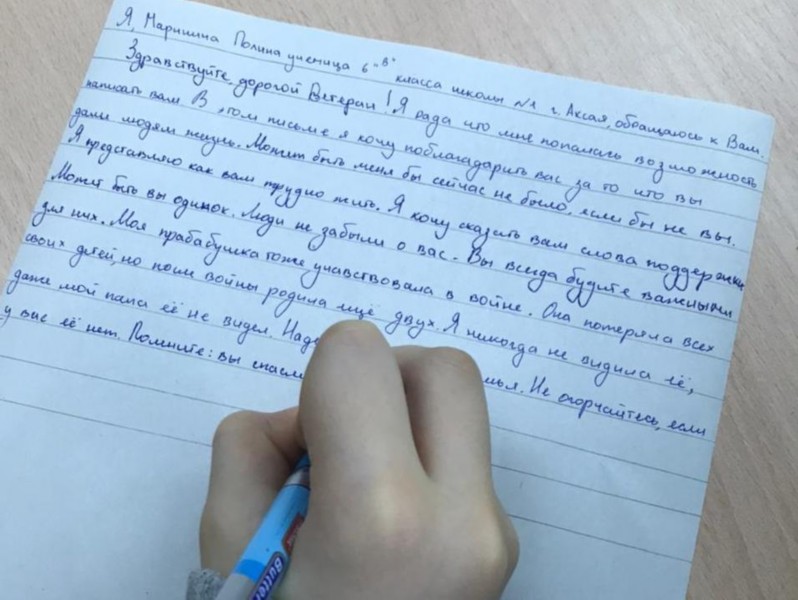 Я, Маринина Полина ученица 6 "В" класса школы №1 г. Аксая, обращаюсь к Вам.
Здравствуйте, дорогой Ветеран! Я рада что мне попалась возможность
написать вам В этом письме я хочу поблагодарить вас за то что вы
дали людям жизнь. Может быть меня бы сейчас не было, если бы не вы.
Я представляю как вам трудно жить. Я хочу сказать вам слова поддержки
Может быть вы одинок. Люди не забыли о вас. Вы всегда будите важными
для них. Моя прабабушка тоже учавствовала в войне. Она потеряла всех
своих детей, но посли войны родила ещё двух. Я никогда не видила её,
даже мой папа её не видел. Наде
у вас её нет. Помните: вы спасли мья. Не огорчайтесь, если
Butter